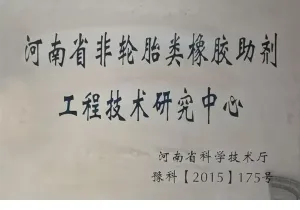 河南省非轮胎类橡胶助剂
工程技术研究中心
河南省科学技术厅
豫科【2015】175号